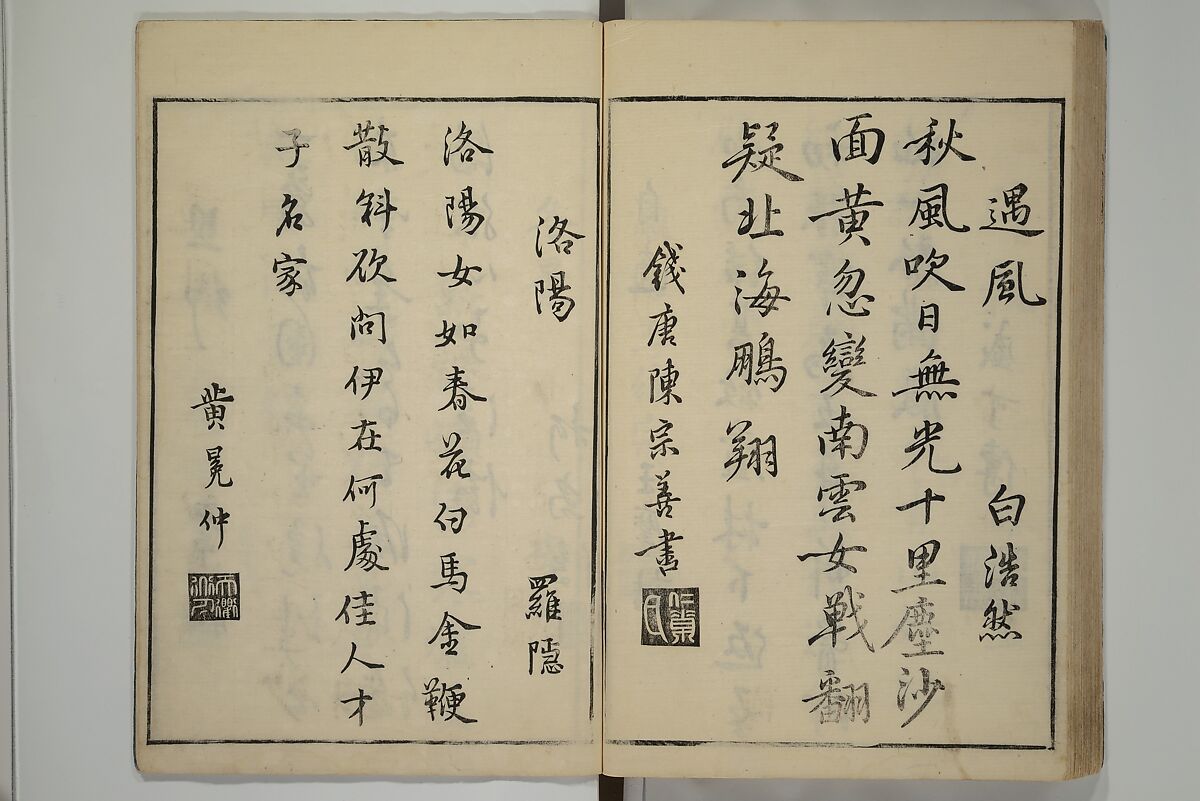 遇風 白浩然
秋風吹日無光十里塵沙
面黄忽變南雲女戦翻
疑北海鵬翔
錢唐陳宗善書
洛陽 羅隱
洛陽女如春花白馬金鞭
散斜欲問伊在何處佳人才
子名家
黄冕仲